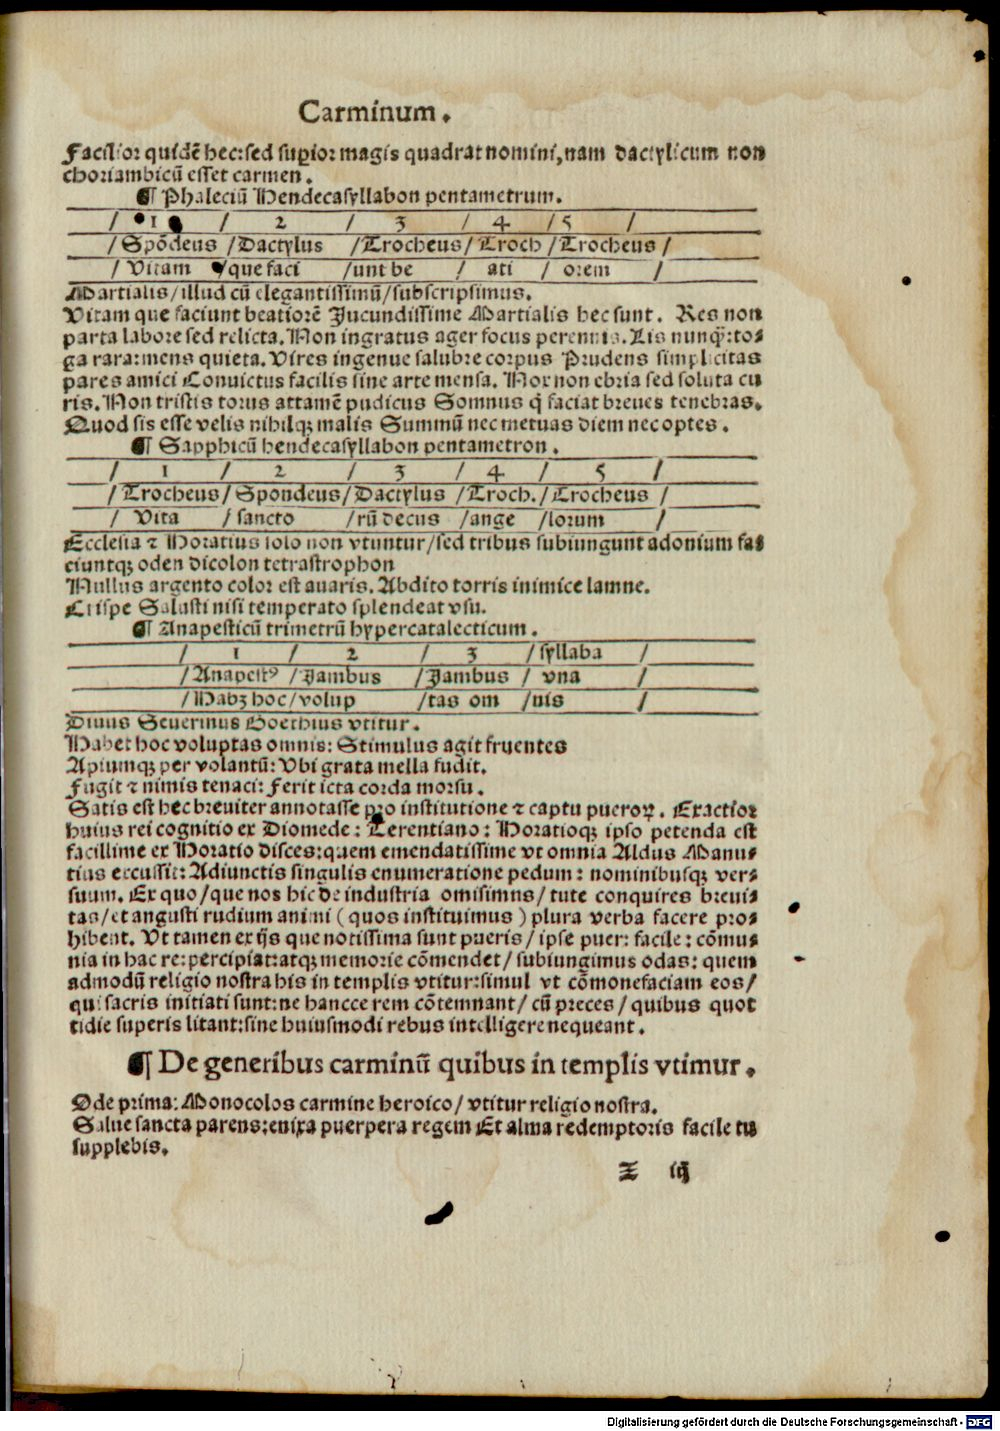 Carminum.
Facilior quidē hec:sed supior magis quadrat nomini,nam dactylicum non
choriambicū esset carmen.
¶ Phaleciū Hendecasyllabon pentametrum.
/ 1 / 2 / 3 / 4 / 5 /
/ Spōdeus / Dactylus / Trocheus / Troch / Trocheus /
/ Vitam / que faci / unt be / ati / orem /
Martialis/illud cū elegantissimū/subscripsimus.
Vitam que faciunt beatiorē Jucundissime Martialis hec sunt. Res non
parta labore sed relicta. Non ingratus ager focus perennis. Lis nunq̄:to⸗
ga rara:mens quieta. Vires ingenue salubre corpus Prudens simplicitas
pares amici Conuictus facilis sine arte mensa. Nox non ebria sed soluta cu
ris. Non tristis torus attamē pudicus Somnus q̄ faciat breues tenebras.
Quod sis esse velis nihilqꝫ malis Summū nec metuas diem nec optes.
¶ Sapphicū hendecasyllabon pentametron.
/ 1 / 2 / 3 / 4 / 5 /
/ Trocheus / Spondeus / Dactylus / Troch. / Trocheus /
/ Vita / sancto / rū decus / ange / lorum /
Ecclesia ⁊ Horatius solo non vtuntur/sed tribus subiungunt adonium fa⸗
ciuntqꝫ oden dicolon tetrastrophon
Nullus argento color est auaris. Abdito torris inimice lamne.
Crispe Salusti nisi temperato splendeat vsu.
¶ Anapesticū trimetrū hypercatalecticum.
/ 1 / 2 / 3 / syllaba /
/ Anapestꝰ / Jambus / Jambus / vna /
/ Habꝫ hoc / volup / tas om / nis /
Diuus Seuerinus Boethius vtitur.
Habet hoc voluptas omnis: Stimulus agit fruentes
Apiumqꝫ per volantū: Vbi grata mella fudit.
Fugit ⁊ nimis tenaci: Ferit icta corda morsu.
Satis est hec breuiter annotasse pro institutione ⁊ captu pueroꝝ. Exactior
huius rei cognitio ex Diomede: Terentiano: Horatioqꝫ ipso petenda est
facillime ex Horatio disces:quem emendatissime vt omnia Aldus Manu⸗
tius excussit: Adiunctis singulis enumeratione pedum: nominibusqꝫ ver⸗
suum. Ex quo/que nos hic de industria omisimns/tute conquires breui⸗
tas/et angusti rudium animi (quos instituimus) plura verba facere pro⸗
hibent. Vt tamen ex ijs que notissima sunt pueris/ipse puer: facile: cōmu⸗
nia in hac re:percipiat:atqꝫ memorie cōmendet/subiungimus odas: quem
admodū religio nostra his in templis vtitur:simul vt cōmonefaciam eos/
qui sacris initiati sunt:ne hancce rem cōtemnant/cū preces/quibus quot
tidie superis litant:sine huiusmodi rebus intelligere nequeant.
¶ De generibus carminū quibus in templis vtimur.
Ode prima: Monocolos carmine heroico/vtitur religio nostra.
Salue sancta parens:enixa puerpera regem Et alma redemptoris facile tu
supplebis.
Z iij
Digitalisierung gefördert durch die Deutsche Forschungsgemeinschaft - DFG